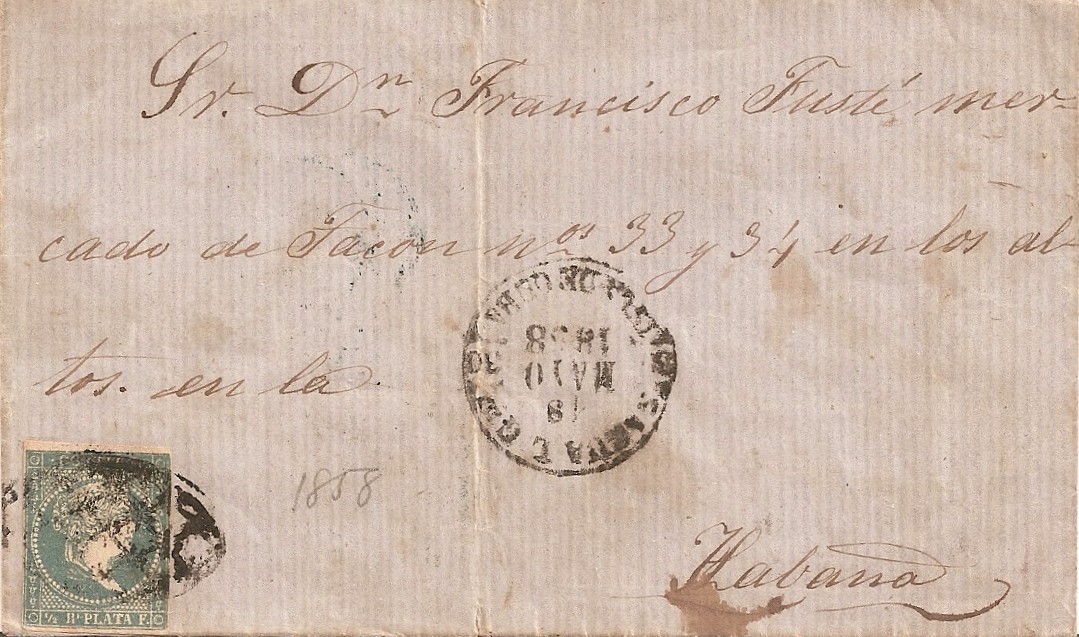 Sr. Dn Francisco Fusté mer-
cado de Tacon nos 33 y 34 en los al-
tos. en la
18
MAYO
1858
1858
Habana
CORREOS
½ Rl PLATA F.